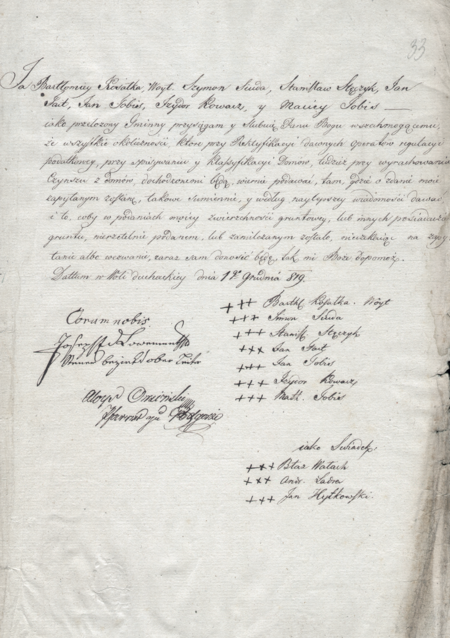 33
Ja Bartłomiey Kosałka, Woyt, Szymon Siuda, Stanisław Stęzyk, Jan
Jan Sobis, Izydor Kowacz, y Maciey Sobis
iako przełozony Gminny przysięgam y slubuię Panu Bogu wszechmogącemu,
że wszystkie okoliczności, które przy Rektyfikacyi dawnych operatów regulacyi
podatkowey, przy opisywaniu y Klasyfikacyi Domów, tudzież przy wyrachowaniu
Czynszu z domów, dochodzonemi będą, wiernie podawać, tam, gdzie o zdanie moie
zapytanym zostanę, takowe sumiennie, y według naylepszey wiadomości dawać
i to, coby w podaniach moiey zwierzchności gruntowey, lub innych posiadaczów
gruntu, nierzetelnie podanem, lub zamilczanem zostało, nieczekaiąc na
albo wezwanie, zaraz sam donosić będę, tak mi Boże dopomóż.
Dattum w Woli duchackiey dnia 12 Grudnia 819.
Coram nobis
+++ Barthl Kosałka. Woyt
+++ Simon Siuda
+++ Stanisł Stęzyk
+++ Jan
+++ Jan Sobis
+++ Izydor Kowacz
+++ Math. Sobis
Aloys
iako Swiadek
+++ Błaz Wałach
+++ And.
+++ Jan Hytkowski